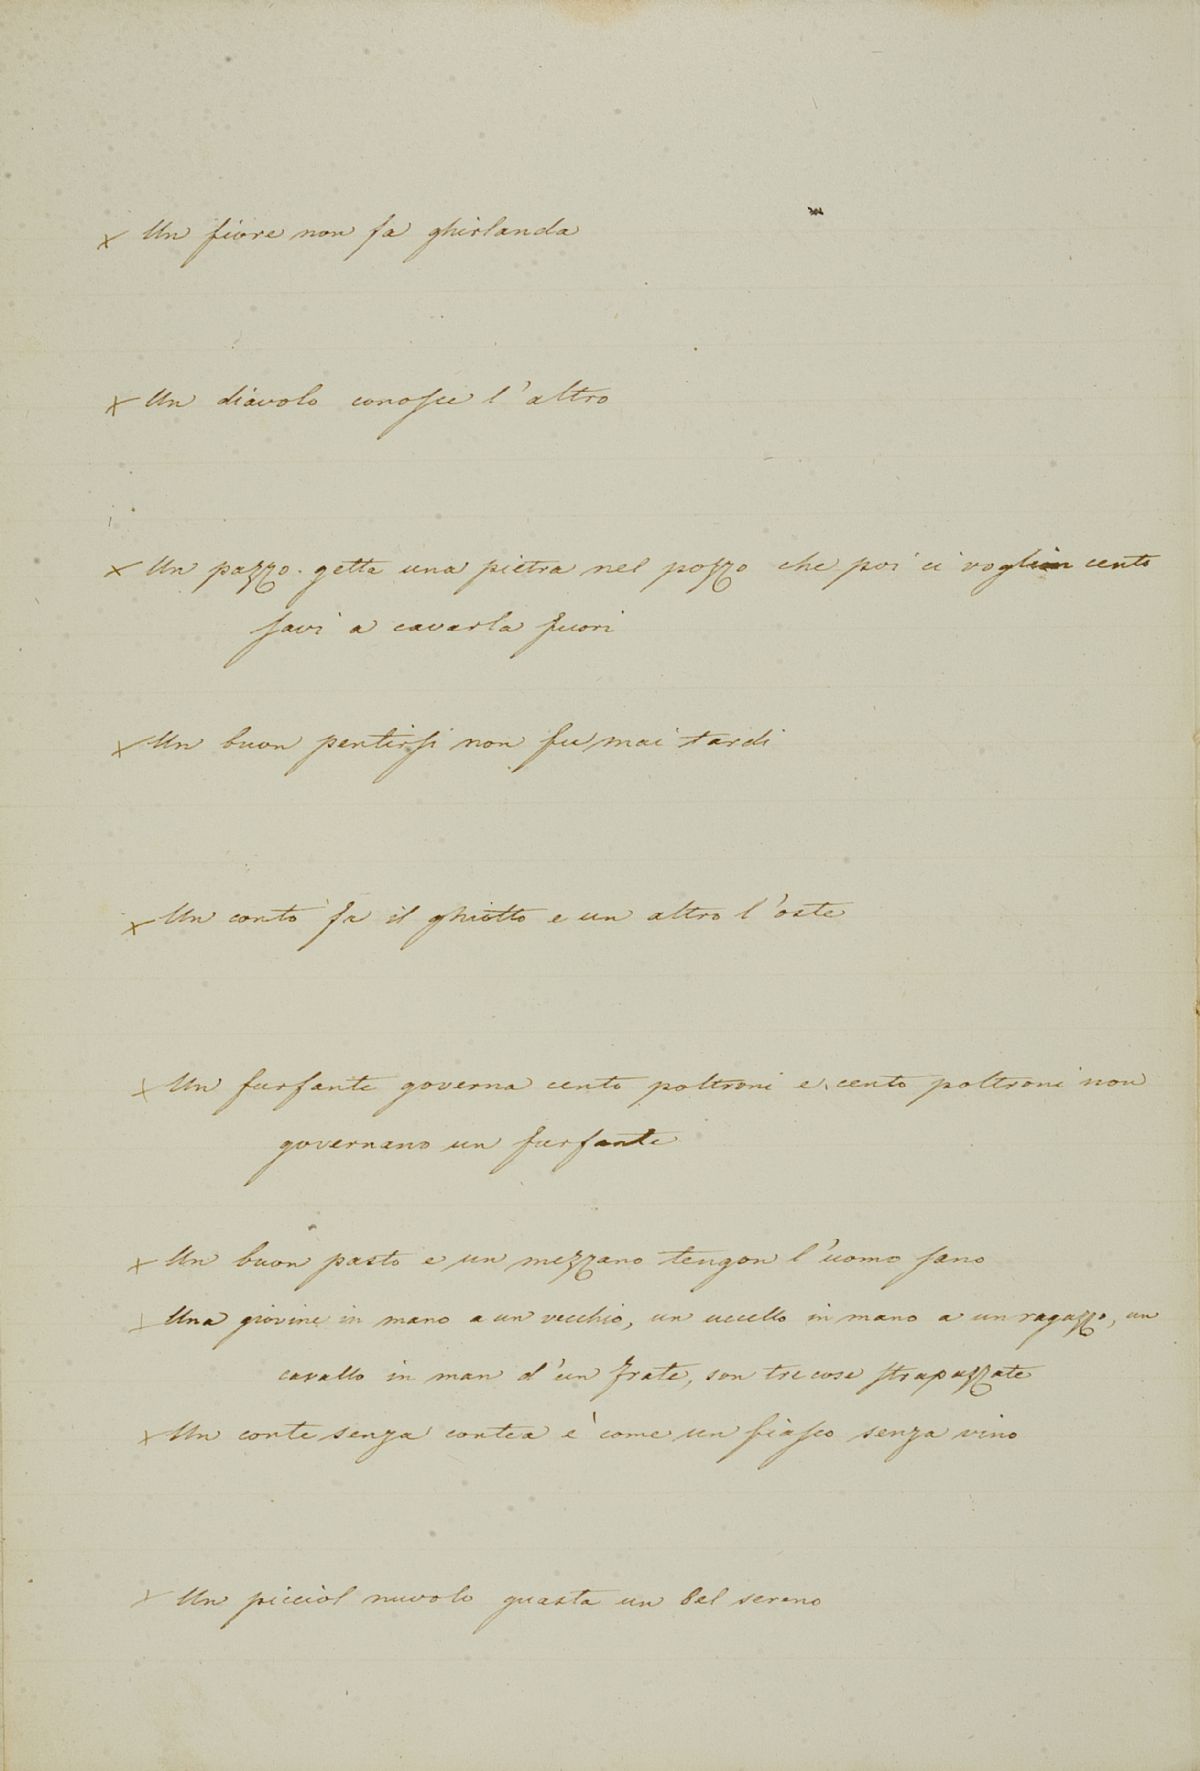 x Un fiore non fa ghirlanda
x Un diavolo conosce l'altro
x Un pazzo getta una pietra nel pozzo che poi ci voglion cento
savi a cavarla fuori
x Un buon pentirsi non fu mai tardi
x Un conto fa il ghiotto e un altro l'oste
x Un furfante governa cento poltroni e cento poltroni non
governano un furfante
x Un buon pasto e un mezzano tengon l'uomo sano
x Una giovine in mano a un vecchio, un uccello in mano a un ragazzo, un
cavallo in man d'un frate, son tre cose strapazzate
x Un conte senza contea è come un fiasco senza vino
x Un picciol nuvolo guasta un bel sereno